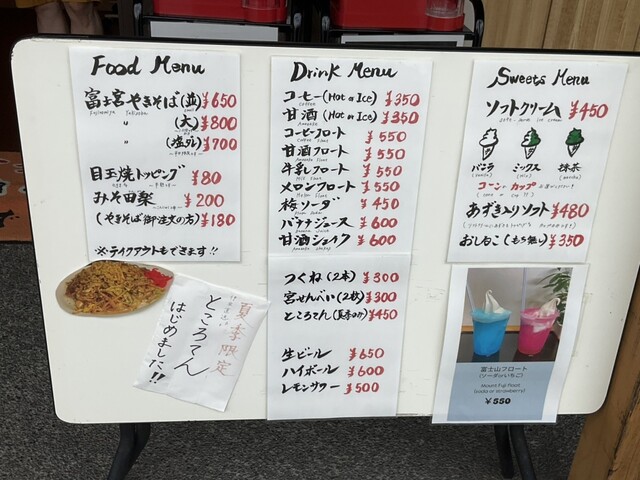 Food Menu
富士宮やきそば(並)¥650
〃 (大)¥800
〃 (塩ダレ)¥700
目玉焼トッピング ¥80
みそ田楽 ¥200
(やきそば御注文の方)¥180
※テイクアウトもできます!!
夏季限定
ところてん
はじめました!!
Drink Menu
コーヒー(Hot or Ice)¥350
甘酒(Hot or Ice)¥350
コーヒーフロート ¥550
甘酒フロート ¥550
牛乳フロート ¥550
メロンフロート ¥550
梅ソーダ ¥450
バナナジュース ¥600
甘酒シェイク ¥600
つくね(2本)¥300
宮せんべい(2枚)¥300
ところてん(夏季のみ)¥450
生ビール ¥650
ハイボール ¥600
レモンサワー ¥500
Sweets Menu
ソフトクリーム ¥450
バニラ ミックス 抹茶
コーン or カップ
あずき入りソフト ¥480
おしるこ(もち無し)¥350
富士山フロート
(ソーダorいちご)
Mount Fuji Float
(soda or strawberry)
¥550